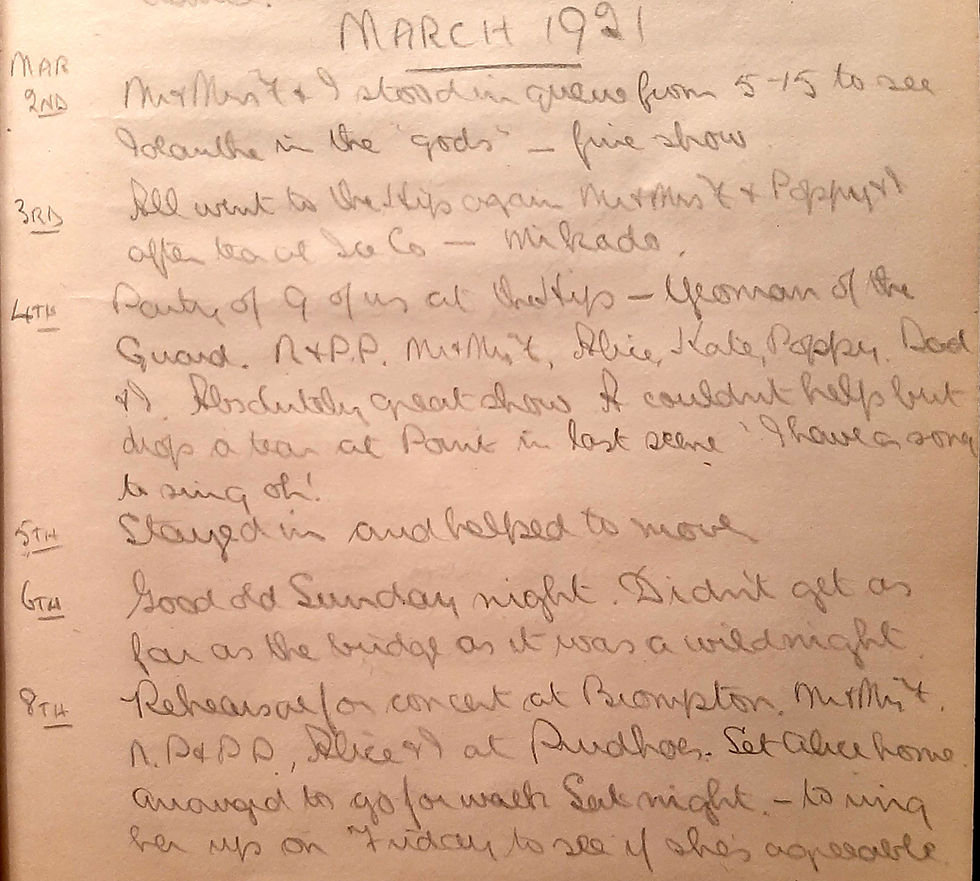 MARCH 1921
MAR
2ND Mr & Mrs T & I stood in queue from 5-15 to see
Iolanthe in the "gods" – fine show
3RD All went to the Hips again Mr & Mrs T & Poppy & I
after tea at Ice Co – Mikado.
4TH Party of 9 of us at the Hips – Yeoman of the
Guard. N & P.P. Mr & Mrs T, Alice, Kate, Poppy. Dad
& I. Absolutely great show & couldnt help but
drop a tear at Point in last scene 'I have a song
to sing oh!
5TH Stayed in and helped to move
6TH Good old Sunday night. Didn't get as
far as the bridge as it was a wild night.
8TH Rehearsal for concert at Brompton. Mr & Mrs T.
N. P & P.P., Alice & I at Prudhoes. Set Alice home
arranged to go for walk Sat night. – to ring
her up on Friday to see if she's agreeable